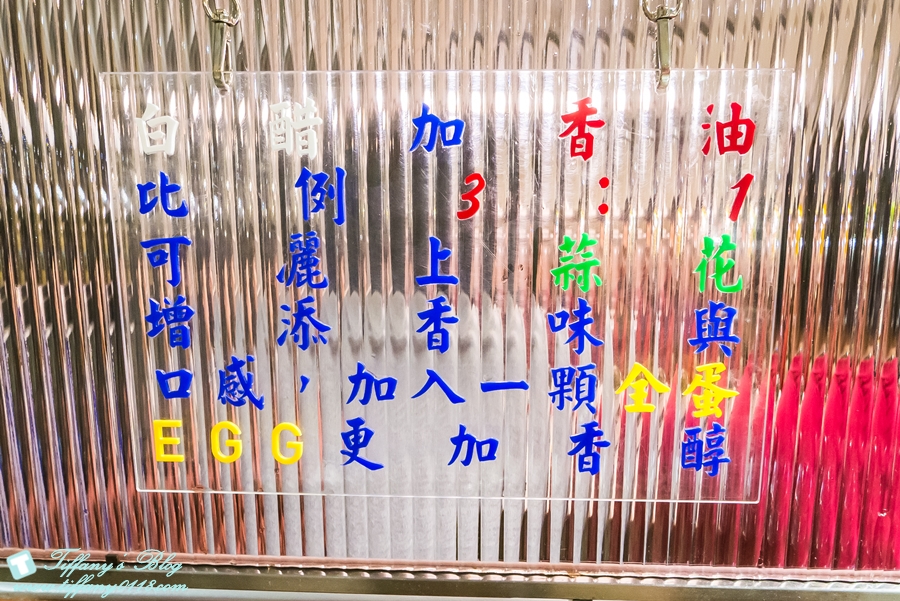 白醋加香油
比例3：1
可麗上蒜花
增添香味與
口感，加入一顆全蛋
EGG更加香醇
Tiffany's Blog
tiffany0118.com